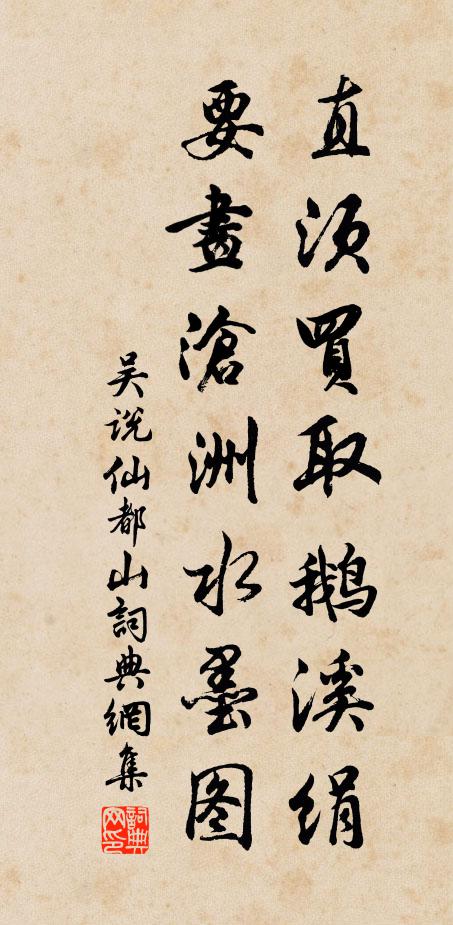 直须買取鹅溪绢
要畫滄洲水墨图
吴说仙都山詞典網集
詞典網印